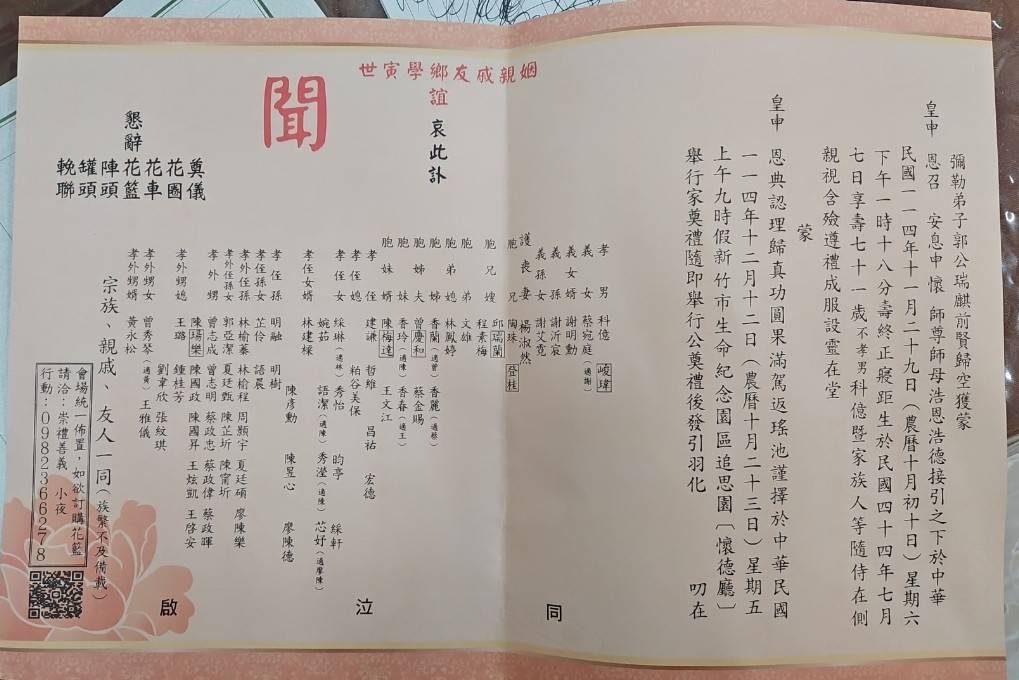 彌勒弟子郭公瑞麒前賢歸空獲蒙
皇申　恩召　安息申懷　師尊師母浩恩浩德接引之下於中華
民國一一四年十一月二十九日（農曆十月初十日）星期六
下午一時十八分壽終正寢距生於民國四十四年七月
七日享壽七十一歲不孝男科億暨家族人等隨侍在側
親視含殮遵禮成服設靈在堂
蒙
皇申　恩典認理歸真功圓果滿駕返瑤池謹擇於中華民國
一一四年十二月十二日（農曆十月二十三日）星期五
上午九時假新竹市生命紀念園區追思園〔懷德廳〕
舉行家奠禮隨即舉行公奠禮後發引羽化　叨在
姻親戚友鄉學寅世
誼
哀此訃
聞
懇辭
奠儀
花圈
花車
花籃
陣頭
罐頭
輓聯
孝男　科億　崚瑋
義女　蔡宛庭（適謝）
義女婿　謝明勳
義孫　謝沂宸
義孫女　謝艾霓
護喪妻　楊淑然
胞兄　陶珠　登桂
胞兄嫂　邱瑞蘭　程素梅
胞弟　文雄
胞弟媳　林鳳婷
胞姊　香蘭（適曾）　香麗（適蔡）
胞姊夫　曾慶和　蔡金賜
胞妹　香玲（適陳）　香春（適王）
胞妹婿　陳梅達　王文江
孝侄　建謙　哲維　昌祐　宏德
孝侄媳　粕谷美保
孝侄女　綵琳（適林）　秀怡　昀亭　綵軒
婉茹　語潔（適陳）　秀瀅（適陳）　芯妤（適廖陳）
孝侄女婿　林建樑　陳彥勳　陳昱心　廖陳德
孝侄孫　明融　明樹
孝侄孫女　芷伶　語晨
孝外侄孫　林榆蓁　林榆程　周顥宇　夏廷碩　廖陳樂
孝外侄孫女　郭亞潔　夏廷甄　陳芷圻　陳甯圻
孝外甥　曾志成　曾志明　蔡政忠　蔡政偉　蔡政暉
陳瑒樂　陳國政　陳國昇　王炫凱　王啓安
孝外甥媳　王璐　鍾桂芳　劉韋欣　張紋琪
孝外甥女　曾秀琴（適黃）　王雅儀
孝外甥女婿　黃永松
宗族、親戚、友人一同（族繁不及備載）
同　泣　啟
會場統一佈置，如欲訂購花籃
請洽：崇禮善義　小夜
行動：0982366278